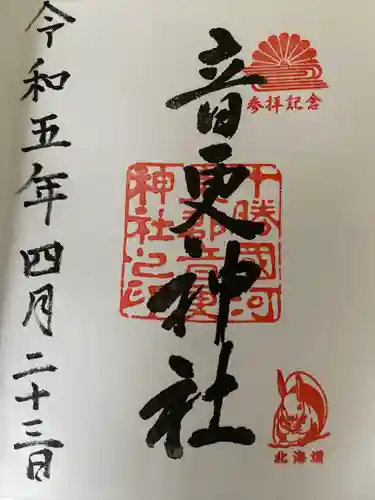 参拝記念
音更神社
十勝國河
東郡音更
神社之印
北海道
令和五年四月二十三日